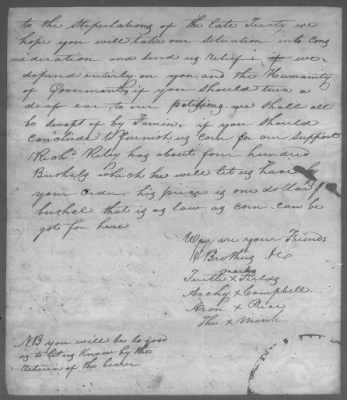 to the Stipulations of the late Treaty we
hope you will take our Situation into Con
sideration and send us relief, if we
depend entirely on you and the Humanity
of Government, if you should turn a
deaf ear to our petition we shall all
be swept of by Famin. if you should
conclude to furnish us corn for our Support
Richd. Riley has about four hundred
Bushels which he will let us have by
your Order. his price is one dollar
bushel that is as low as corn can be
got for here
We are your Friends
& Brothers &c
marks
Turtle x
Archy x Campbell
Aron x Price
The x Mink
NB you will be so good
as to let us know by the
return of the bearer